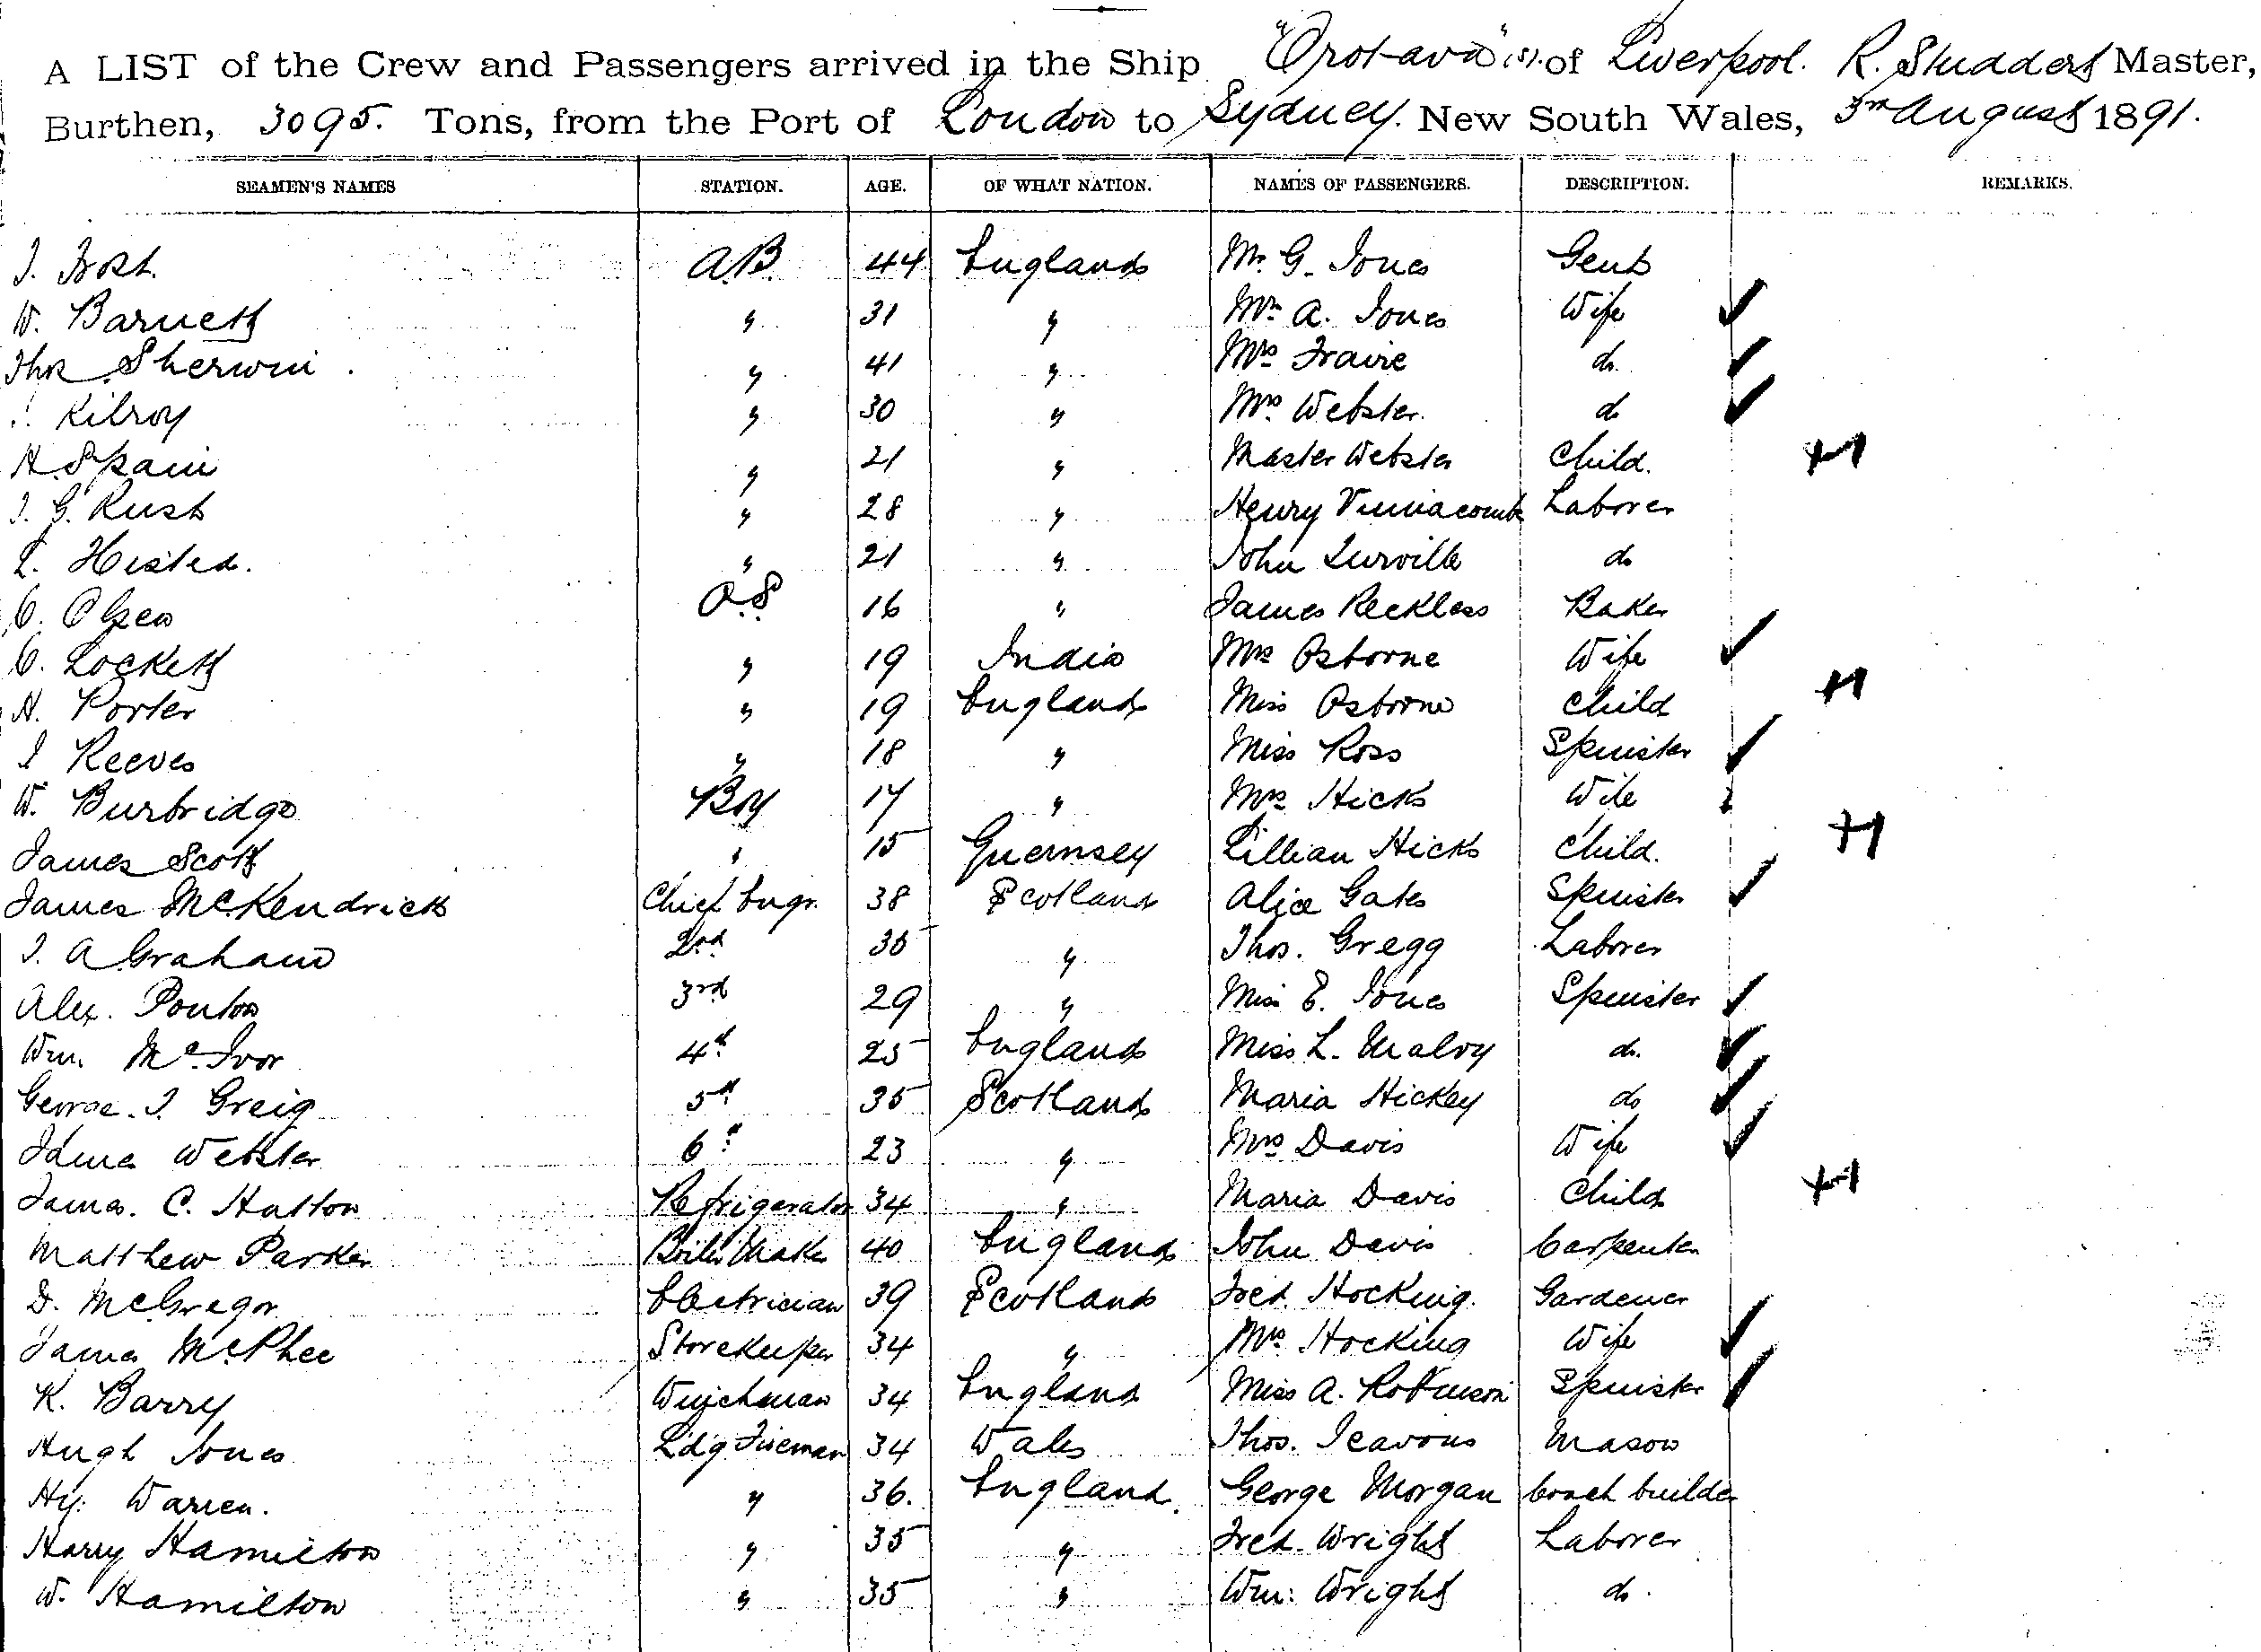 A LIST of the Crew and Passengers arrived in the Ship "Orotava" (s) of Liverpool. R. Studdert Master,
Burthen, 3095. Tons, from the Port of London to Sydney. New South Wales, 3rd August 1891.
SEAMEN'S NAMES STATION. AGE. OF WHAT NATION. NAMES OF PASSENGERS. DESCRIPTION. REMARKS.
J. Frost. A.B. 44 England Mr. G. Jones Gent
W. Barnett " 31 " Mrs. A. Jones Wife
Thos. Sherwin " 41 " Mrs. do.
Kilroy " 30 " Mrs. Webster. do
H. Spain " 21 " Master Webster Child.
J. G. Rust " 28 " Henry Vinniacombe Laborer
L. Histed. " 21 " John Turville do
C. Olsen O.S. 16 " James Reckless Baker
C. Lockett " 19 India Mrs Osborne Wife
H. Porter " 19 England Miss Osborne Child
J Reeves " 18 " Miss Ross Spinster
W. Burbridge Boy 17 " Mrs Hicks Wife
James Scott " 15 Guernsey Lillian Hicks Child.
James McKendrick Chief Engr. 38 Scotland Alice Gates Spinster
J. A Graham 2nd 35 " Thos. Gregg Laborer
Alex. Ponton 3rd 29 " Miss E. Jones Spinster
Wm. McIvor 4th 25 England Miss L. Maloy do.
George. J. Greig 5th 35 Scotland Maria Hickey do
James Webster 6th 23 " Mrs Davis Wife
James. C. Hatton Refrigerator 34 " Maria Davis Child
Matthew Parker Boiler Maker 40 England John Davis Carpenter
D. McGregor Electrician 39 Scotland Fred. Hocking. Gardener
James McPhee Storekeeper 34 " Mrs. Hocking Wife
K. Barry Winchman 34 England Miss A. Robinson Spinster
Hugh Jones Ldg Fireman 34 Wales Thos. Mason
Hy. Warren. " 36. England. George Morgan Coach builder
Harry Hamilton " 35 " Fred. Wright Laborer
W. Hamilton " 35 " Wm: Wright do.